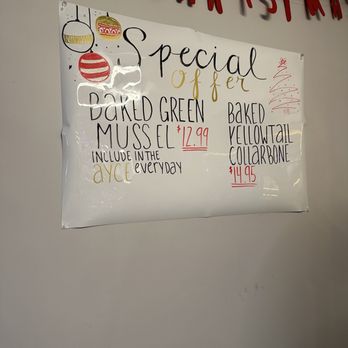 Special
offer
BAKED GREEN
MUSSEL $12.99
INCLUDE IN THE
AYCE everyday
BAKED
YELLOWTAIL
COLLARBONE
$14.95